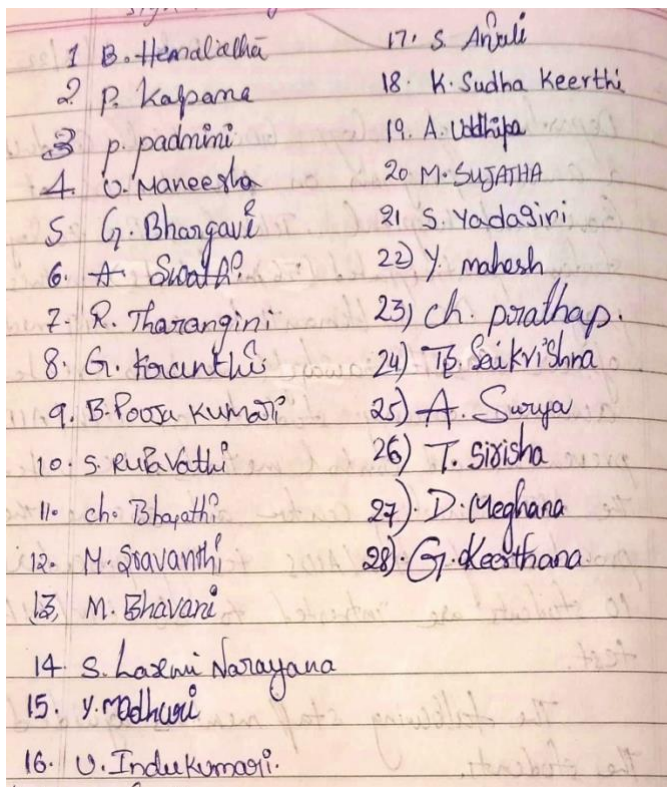 1 B. Hemalatha
2 P. Kalpana
3 P. padmini
4. U. Maneesha
5 G. Bhargavi
6. A Swathi
7. R. Tharangini
8. G. Kranthi
9. B. Pooja Kumari
10. S. Rupavathi
11. ch. Bharathi
12. M. Sravanthi
13, M. Bhavani
14. S. Laxmi Narayana
15. Y. Madhuri
16. U. Indukumari.
17. S. Anjali
18. K. Sudha Keerthi
19. A.
20 M. SUJATHA
21 S. Yadagiri
22) Y. mahesh
23) ch. prathap.
24) B. Saikrishna
25) A. Surya
26) T. Sirisha
27). D. Meghana
28). G. Keerthana